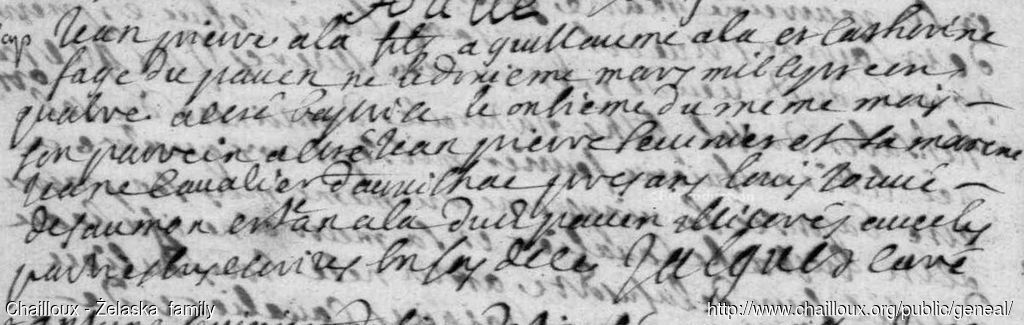 Jean pierre ala fils a guilliaume ala et Catherine
fage du pauen ne le disieme mars mil sept cen
quatre a esté baptisé le onsieme du meme mois
son parrein a esté Jean pierre et sa marene
Jeane Caualier d'aurilhac presans Louis
de et Jan ala dud pauen illiterés auec les
parties en foy de ce curé
Chailloux - Želaska family
http://www.chailloux.org/public/geneal/